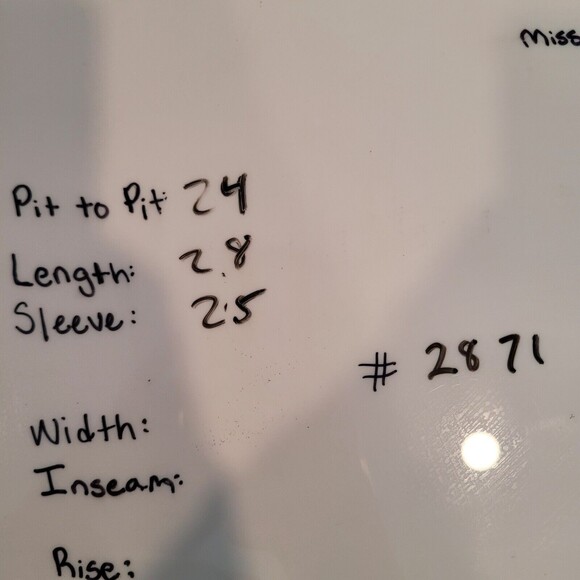 Miss
Pit to Pit: 24
Length: 28
Sleeve: 25
# 2871
Width:
Inseam:
Rise: